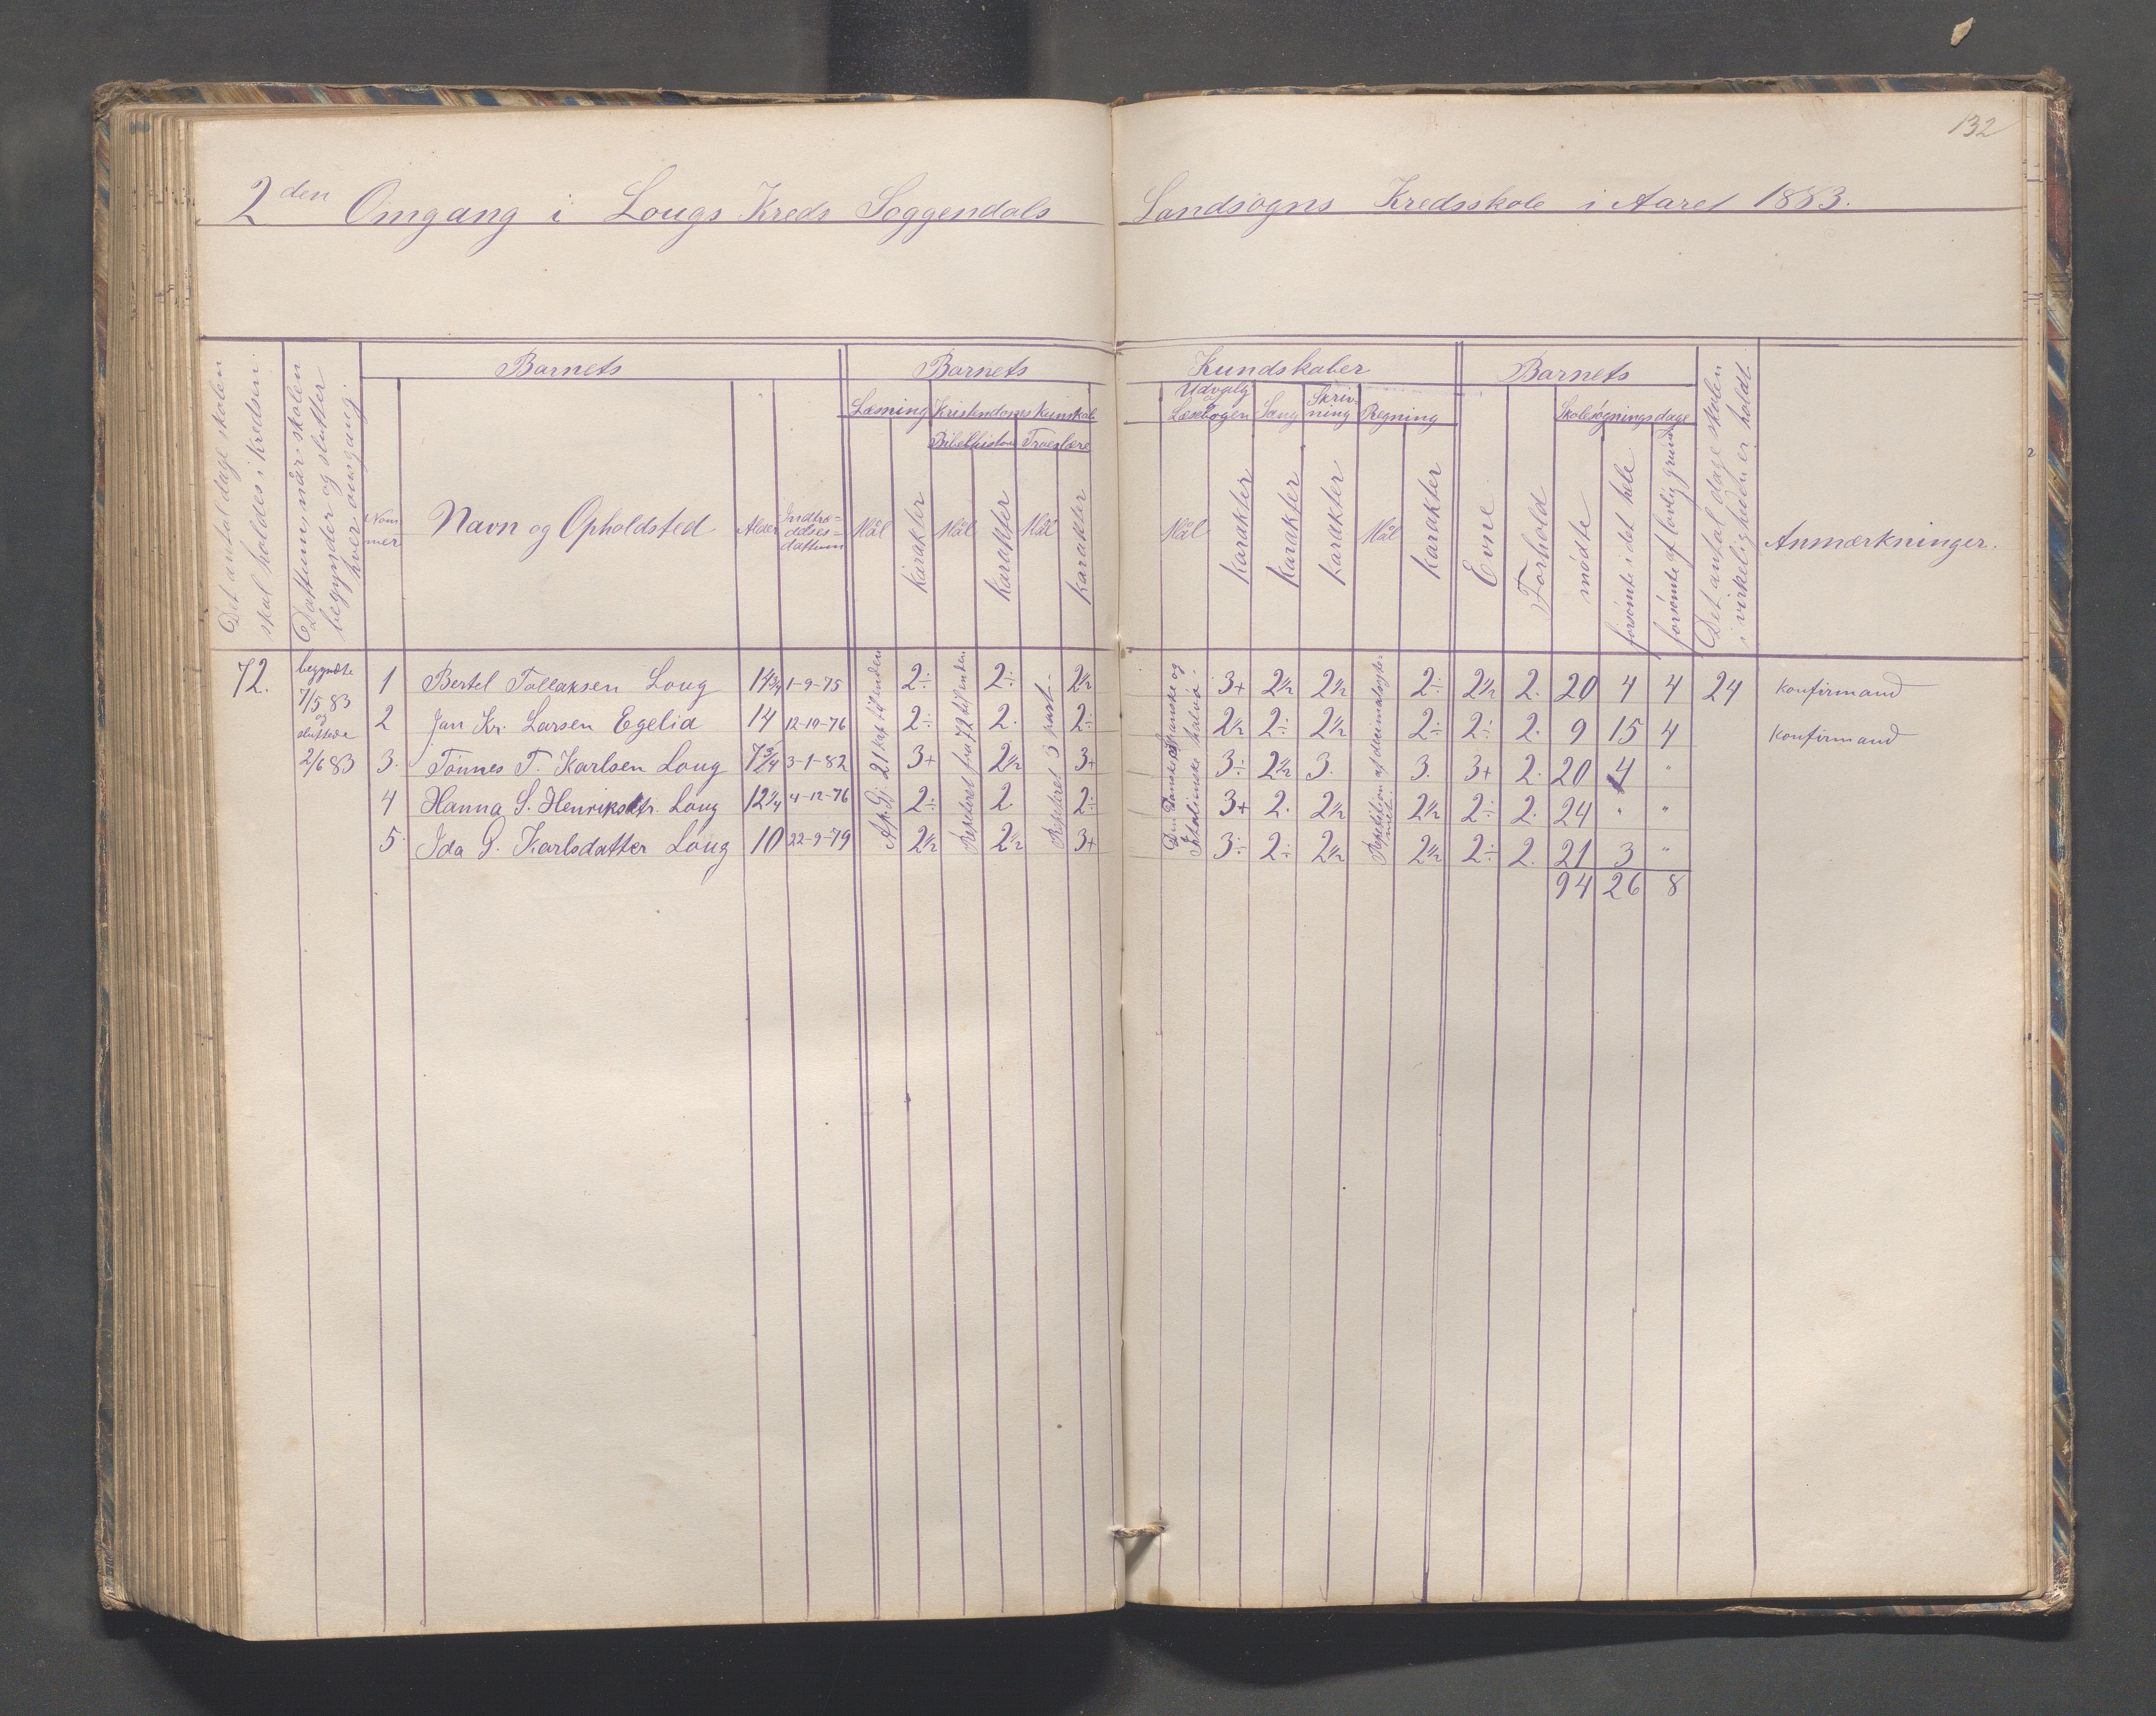 132
2den Omgang i Lougs Kreds Soggendals Landsogns Kredsskole i Aaret 1883.
Det antal dage skolen skal holdes i kredsen.
Dattum når skolen begynder og slutter hver omgang.
Barnets
Nommer
Navn og Opholdsted
Alder
Indtrædelses-dattum
Barnets Kundskaber
Læsning
Mål
karakter
Kristendomskunskab
Bibelhistorie
Mål
karakter
Troeslære
Mål
karakter
Udvalg af Læsebogen
Mål
karakter
Sang
karakter
Skrivning
karakter
Regning
Mål
karakter
Barnets
Evne
Forhold
Skolesøgningsdage
mødte
forsømte i det hele
forsømte af lovlig grund
Det antal dage skolen i virkeligheden er holdt.
Anmærkninger.
72.
begyndte 7/5 83 og sluttede 2/6 83
Ap. Gj. 21 kap til enden
Repeteret fra 72 til enden
Repeteret 3 part
Den Danske, Spanske og Italienske halvø
Repetition af decimalregning
1 Bertel Tollaksen Loug 14 3/4 1-9-75 2÷ 2÷ 2 1/2 3+ 2 1/2 2 1/2 2÷ 2 1/2 2. 20 4 4 24 konfirmand
2 Jan Kr. Larsen Egelid 14 12-10-76 2÷ 2. 2÷ 2 1/2 2÷ 2 1/2 2÷ 2÷ 2. 9 15 4 konfirmand
3. Tönnes T. Karlsen Loug 7 3/4 3-1-82 3+ 2 1/2 3+ 3÷ 2 1/2 3. 3. 3+ 2. 20 4 "
4 Hanna S. Henriksdtr. Loug 12 1/4 4-12-76 2÷ 2. 2÷ 3+ 2. 2 1/2 2 1/2 2÷ 2. 24 " "
5. Ida G. Karlsdatter Loug 10 22-9-79 2 1/2 2 1/2 3+ 3÷ 2÷ 2 1/2 2 1/2 2÷ 2. 21 3 "
94 26 8